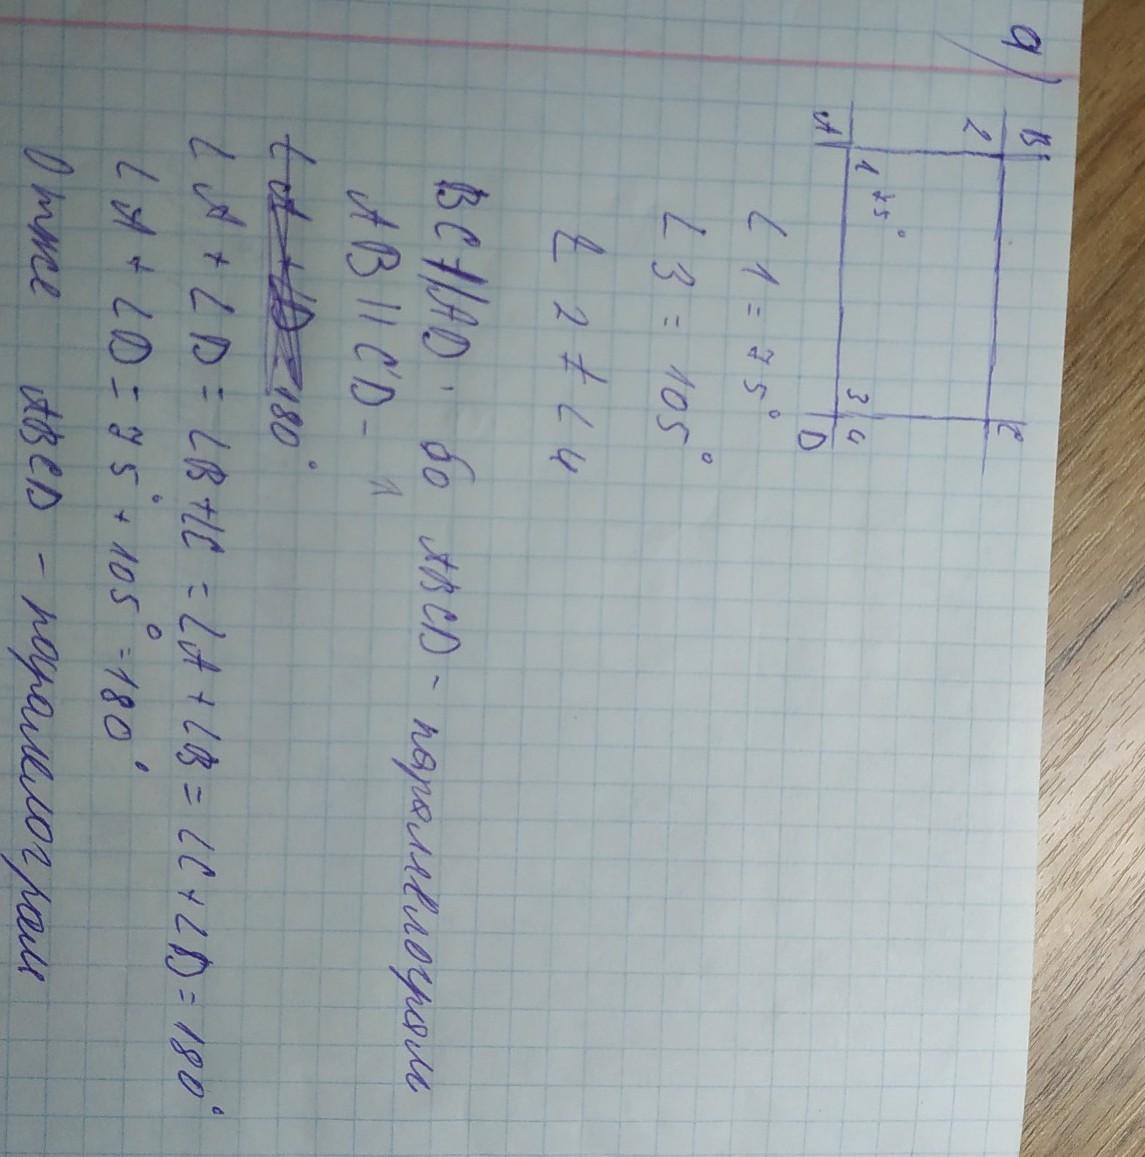 а)
B C
2
1 75°
3
A D 4
∠1 = 75°
∠3 = 105°
∠2 ≠ ∠4
BC∦AD. бо ABCD - паралелограм
AB || CD -
180°
∠A + ∠D = ∠B+∠C = ∠A + ∠B = ∠C + ∠D = 180°
∠A + ∠D = 75° + 105° = 180°
Отже ABCD - паралелограм